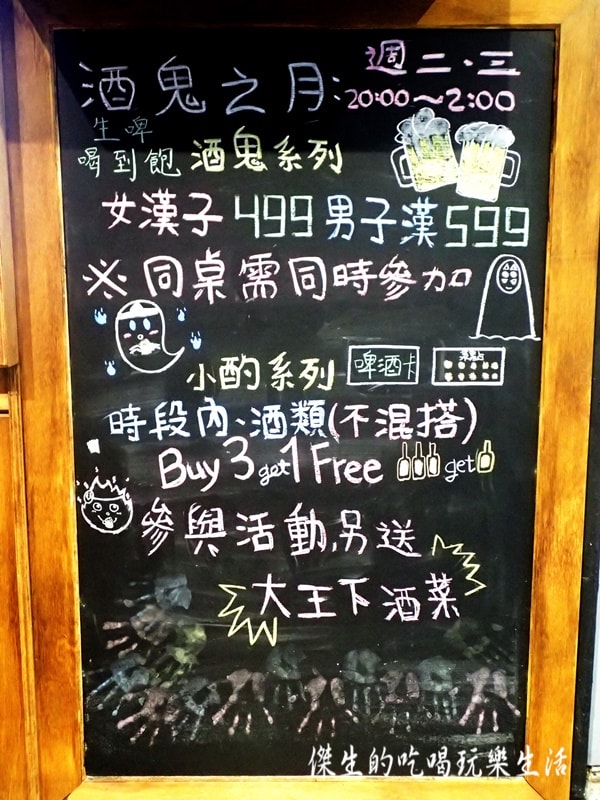 酒鬼之月:
週二、三
20:00～2:00
生啤
喝到飽 酒鬼系列
女漢子 499 男子漢 599
※ 同桌需同時參加
小酌系列 啤酒卡 集點
時段內、酒類(不混搭)
Buy 3 get 1 Free get
參與活動,另送
大王下酒菜
傑生的吃喝玩樂生活